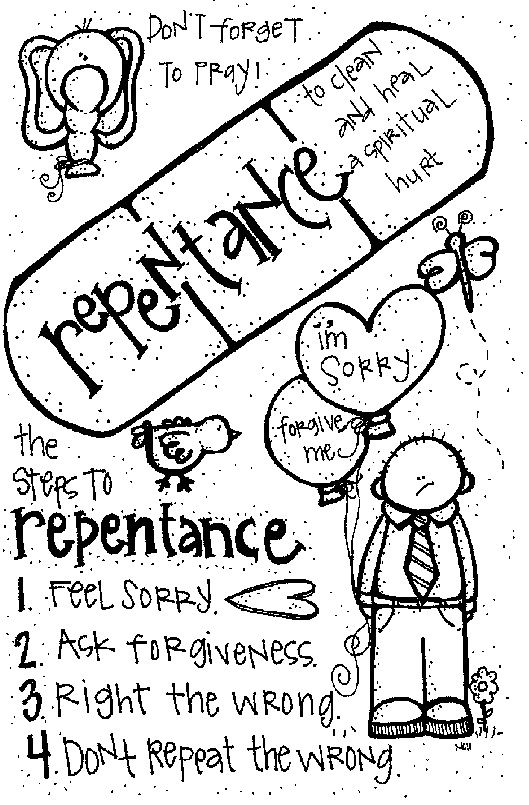 Don't forget
to pray!
to clean
and heal
a spiritual
hurt
repentance
i'm
sorry
forgive
me
the
steps to
repentance
1. Feel sorry.
2. Ask forgiveness.
3. Right the wrong.
4. Dont repeat the wrong.